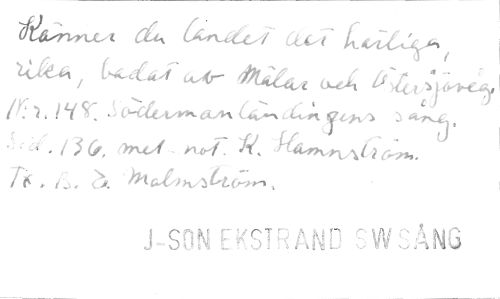 Känner du landet det härliga,
rika, badat av Mälar och Östersjövåg.
N:r. 148. Södermanländingens sång.
Sid. 136. mel. not. K. Hamnström.
Tx. B. E. Malmström.
J-SON EKSTRAND SWSÅNG